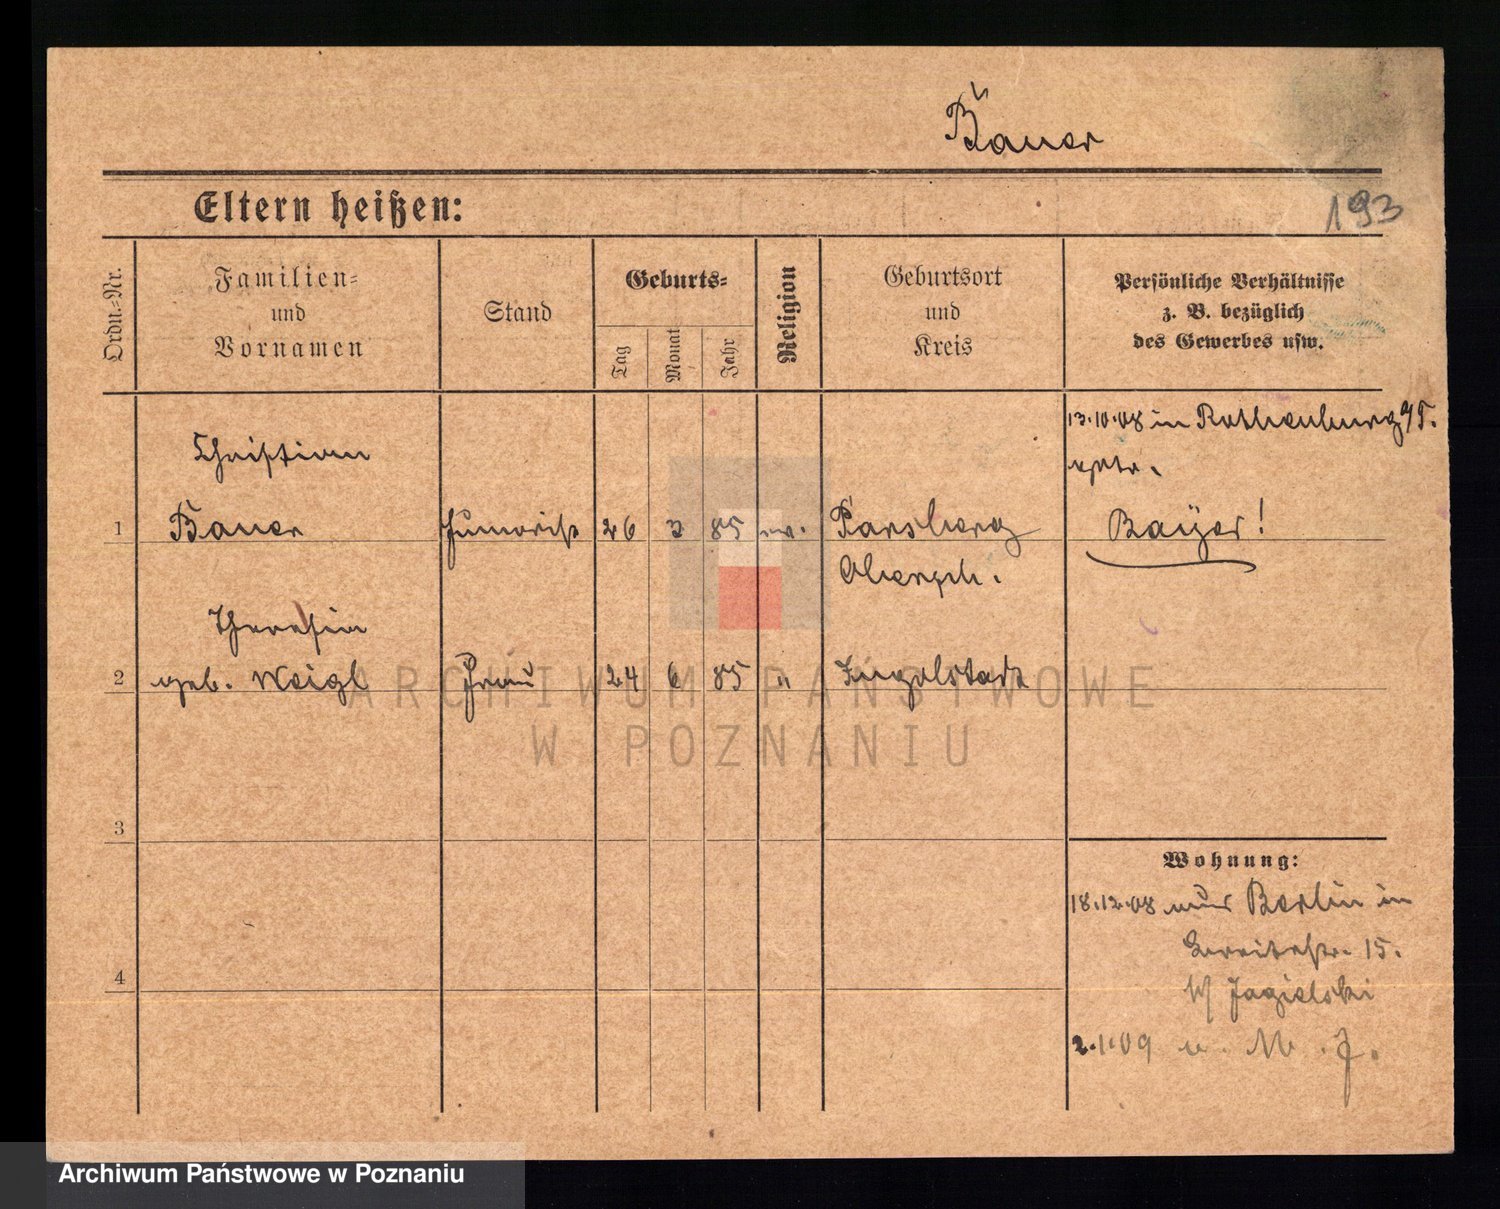 Bauer
193
Eltern heißen:
Ordn.=Nr.
Familien=
und
Vornamen
Stand
Geburts=
Tag
Monat
Jahr
Religion
Geburtsort
und
Kreis
Persönliche Verhältnisse
z. B. bezüglich
des Gewerbes usw.
13.10.08 in Rothenburg a/T.
getr.
Christian
1 Bauer Humorist 26 3 85 ev. Parsberg
Bayer!
Oberpf.
Theresia
2 geb. Weigl Frau 24 6 85 " Ingolstadt
3
4
Wohnung:
18.12.08 aus Berlin in
Breitestr. 15.
b/ Jagielski
2.1.09 n.
ARCHIWUM PAŃSTWOWE
W POZNANIU
Archiwum Państwowe w Poznaniu